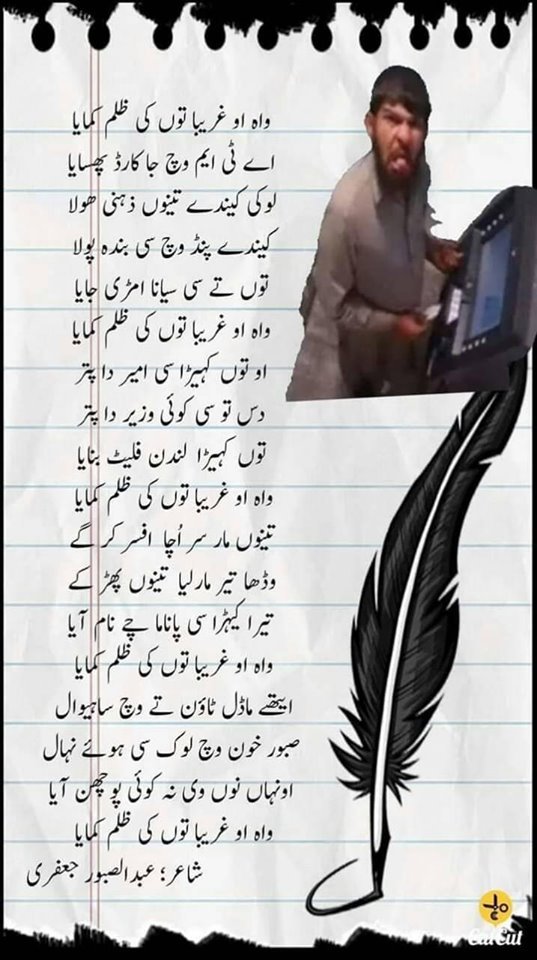 واہ او غریبا توں کی ظلم کمایا
اے ٹی ایم وچ جا کارڈ پھسایا
لوکی کیندے تینوں ذہنی ھولا
کیندے پنڈ وچ سی بندہ پولا
توں تے سی سیانا امڑی جایا
واہ او غریبا توں کی ظلم کمایا
او توں کہیڑا سی امیر دا پتر
دس تو سی کوئی وزیر دا پتر
توں کہیڑا لندن فلیٹ بنایا
واہ او غریبا توں کی ظلم کمایا
تینوں مار سر اُچا افسر کر گے
وڈھا تیر مار لیا تینوں پھڑ کے
تیرا کیہڑا سی پاناما چے نام آیا
واہ او غریبا توں کی ظلم کمایا
ایتھے ماڈل ٹاؤن تے وچ ساہیوال
صبور خون وچ لوک سی ہوئے نہال
اونہاں نوں وی نہ کوئی پوچھن آیا
واہ او غریبا توں کی ظلم کمایا
شاعر؛ عبدالصبور جعفری
CatCut